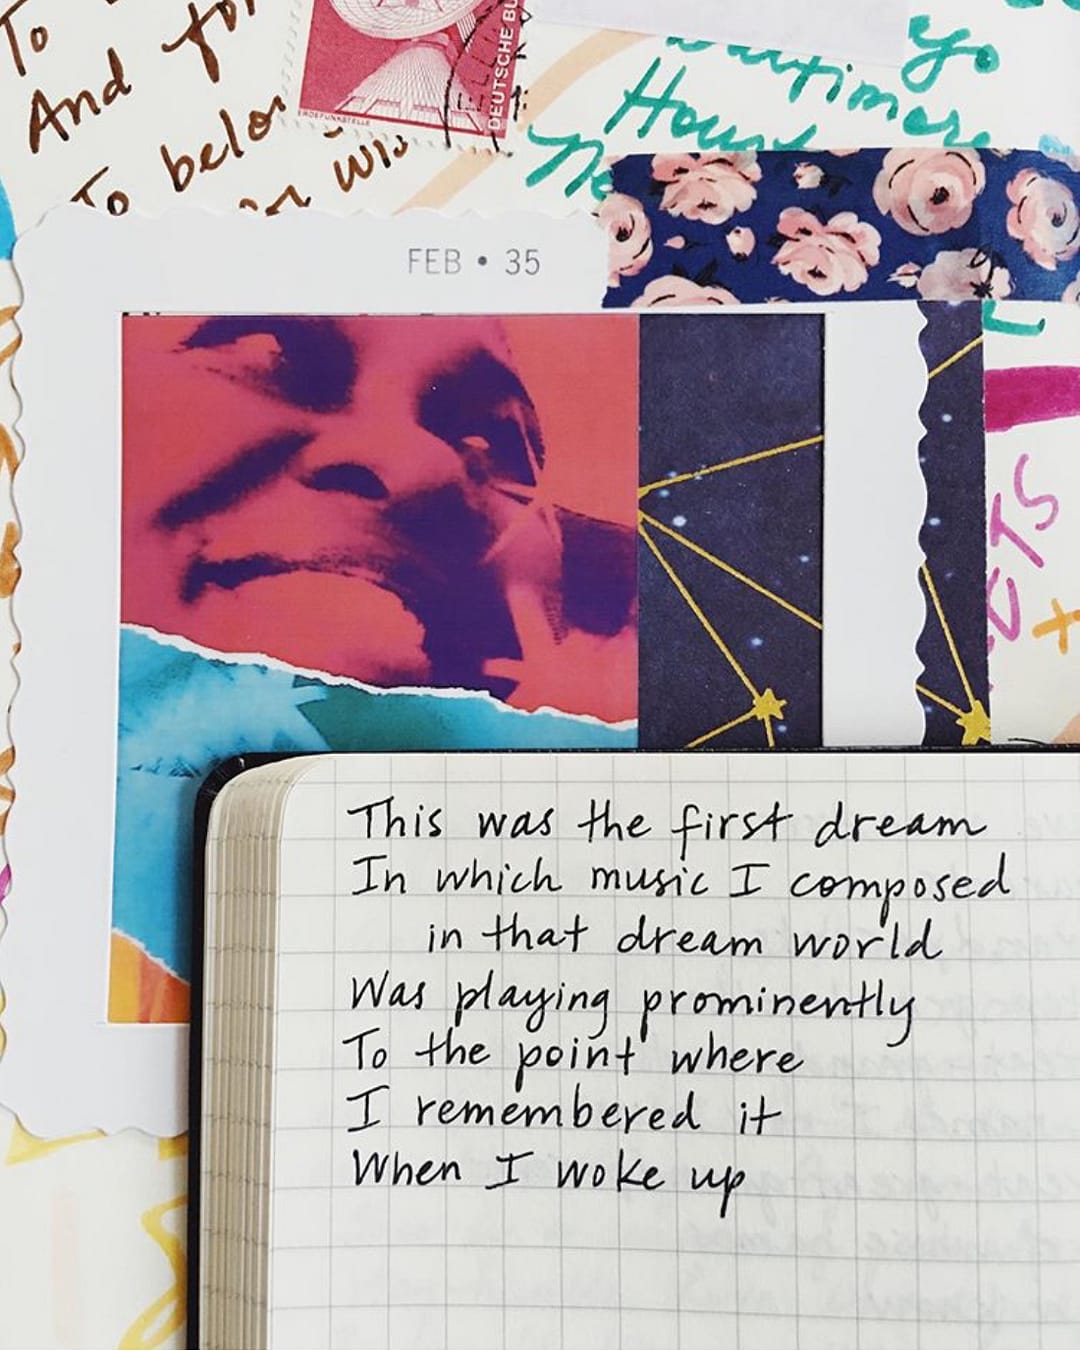 To
And for
To belon
or wis
DEUTSCHE BU
ERDEFUNKSTELLE
go
Baltimore
Houst
Ne
FEB • 35
OTS
+
This was the first dream
In which music I composed
in that dream world
Was playing prominently
To the point where
I remembered it
When I woke up